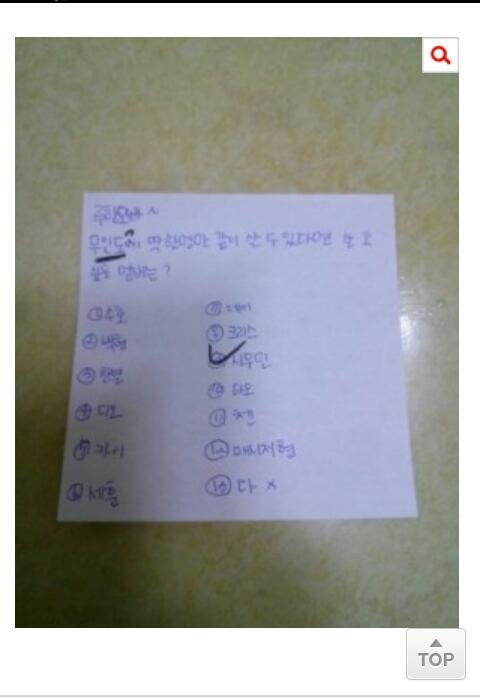 루한오빠~
무인도에 딱 한명만 같이 살 수 있다면 살고
싶은 멤버는?
① 수호
② 백현
③ 찬열
④ 디오
⑤ 카이
⑥ 세훈
⑦ 레이
⑧ 크리스
⑨ 시우민
⑩ 타오
⑪ 첸
⑫ 매니저형
⑬ 다 x
TOP